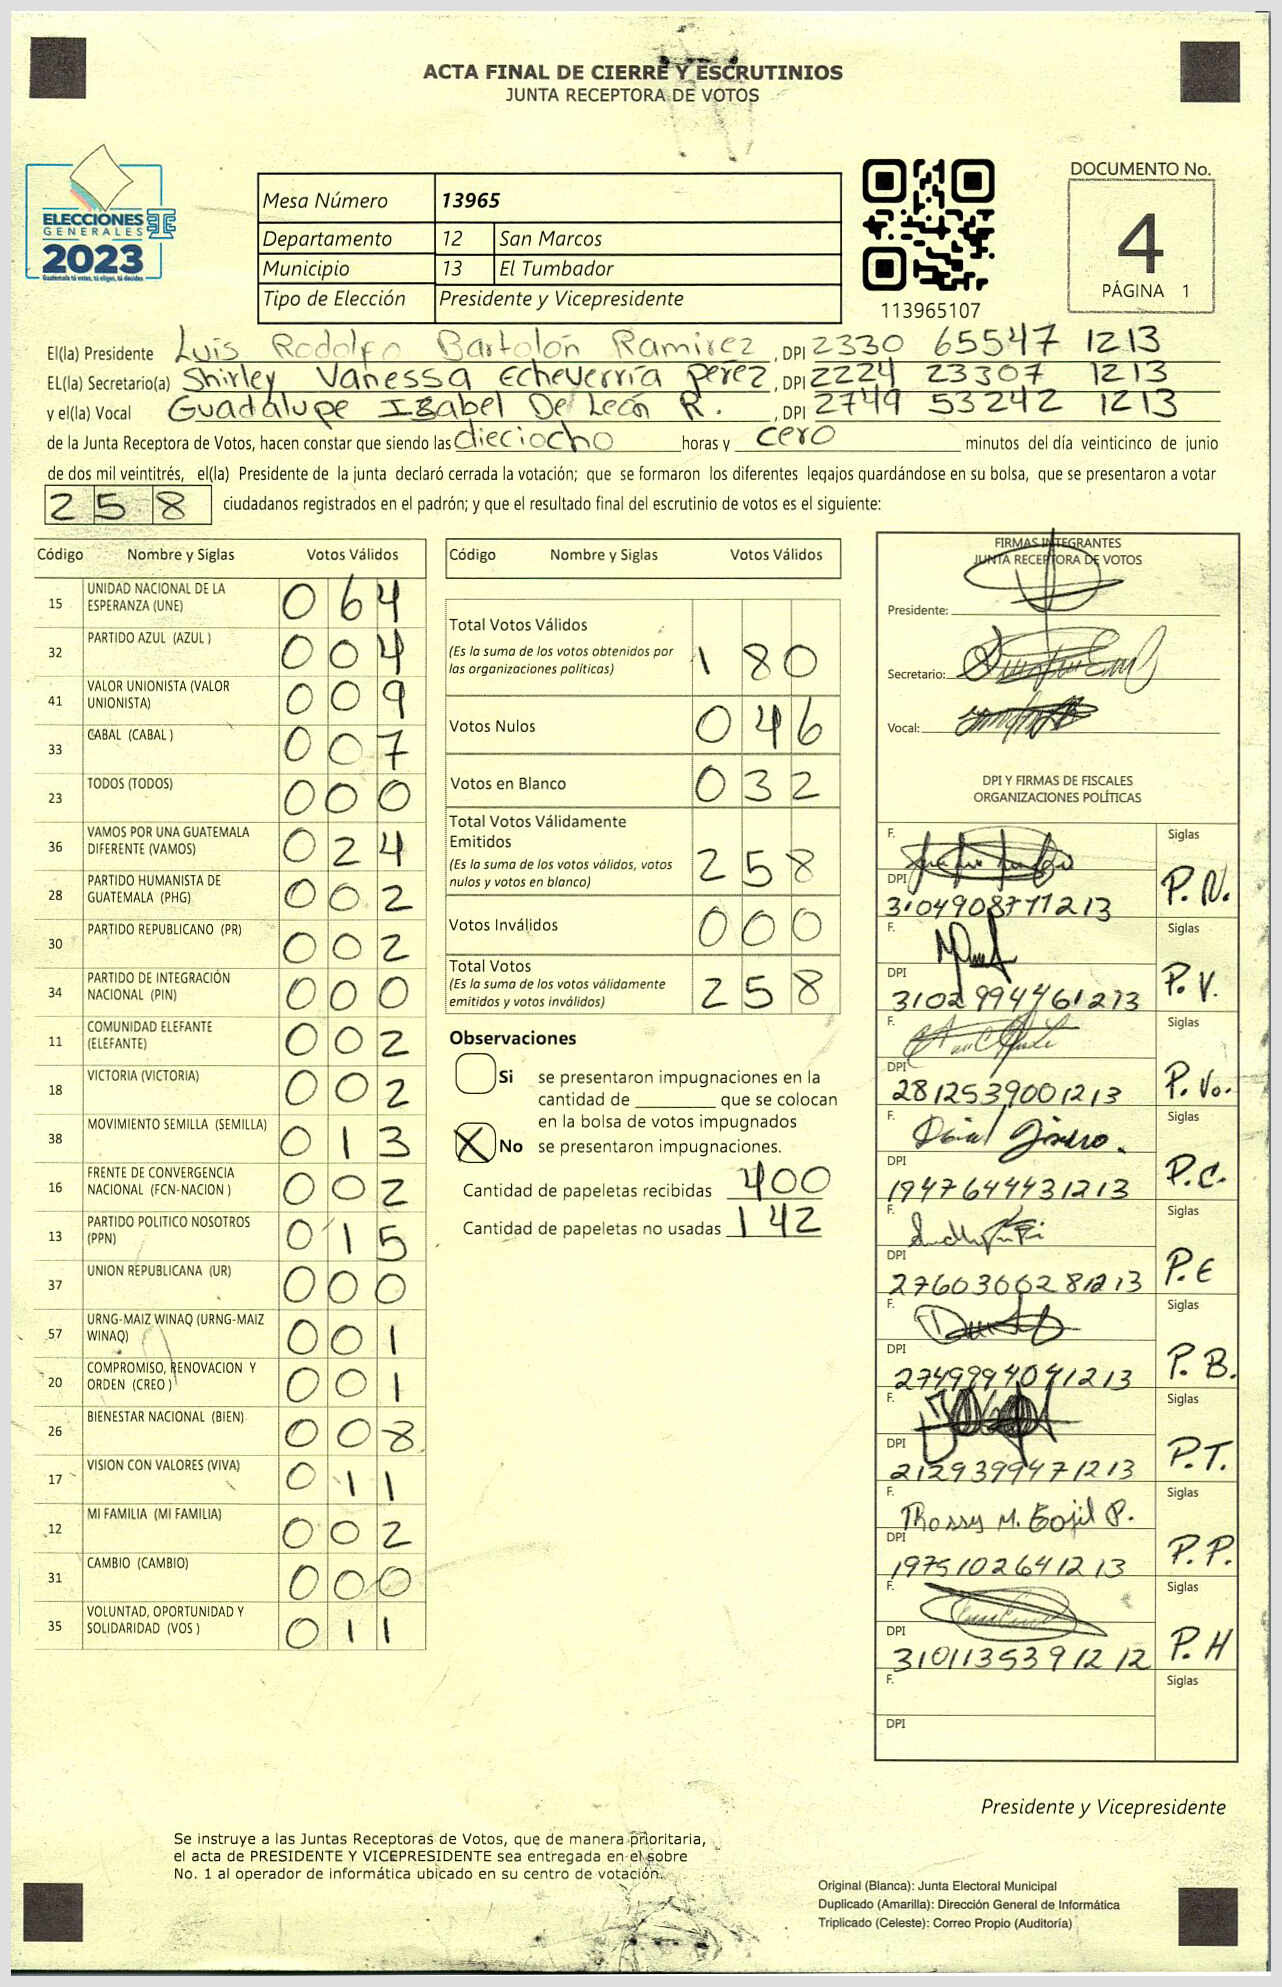 ACTA FINAL DE CIERRE Y ESCRUTINIOS
JUNTA RECEPTORA DE VOTOS
ELECCIONES
GENERALES
2023
Guatemala tú votas, tú eliges, tú decides
Mesa Número 13965
Departamento 12 San Marcos
Municipio 13 El Tumbador
Tipo de Elección Presidente y Vicepresidente
113965107
DOCUMENTO No.
4
PÁGINA 1
El(la) Presidente Luis Rodolfo Bartolón Ramirez, DPI 2330 65547 1213
EL(la) Secretario(a) Shirley Vanessa Echeverría perez, DPI 2224 23307 1213
y el(la) Vocal Guadalupe Isabel De León R. , DPI 2749 53242 1213
de la Junta Receptora de Votos, hacen constar que siendo las dieciocho horas y cero minutos del día veinticinco de junio
de dos mil veintitrés, el(la) Presidente de la junta declaró cerrada la votación; que se formaron los diferentes legajos guardándose en su bolsa, que se presentaron a votar
258 ciudadanos registrados en el padrón; y que el resultado final del escrutinio de votos es el siguiente:
Código Nombre y Siglas Votos Válidos
15 UNIDAD NACIONAL DE LA ESPERANZA (UNE) 064
32 PARTIDO AZUL (AZUL ) 004
41 VALOR UNIONISTA (VALOR UNIONISTA) 009
33 CABAL (CABAL ) 007
23 TODOS (TODOS) 000
36 VAMOS POR UNA GUATEMALA DIFERENTE (VAMOS) 024
28 PARTIDO HUMANISTA DE GUATEMALA (PHG) 002
30 PARTIDO REPUBLICANO (PR) 002
34 PARTIDO DE INTEGRACIÓN NACIONAL (PIN) 000
11 COMUNIDAD ELEFANTE (ELEFANTE) 002
18 VICTORIA (VICTORIA) 002
38 MOVIMIENTO SEMILLA (SEMILLA) 013
16 FRENTE DE CONVERGENCIA NACIONAL (FCN-NACION ) 002
13 PARTIDO POLITICO NOSOTROS (PPN) 015
37 UNION REPUBLICANA (UR) 000
57 URNG-MAIZ WINAQ (URNG-MAIZ WINAQ) 001
20 COMPROMISO, RENOVACION Y ORDEN (CREO ) 001
26 BIENESTAR NACIONAL (BIEN) 008
17 VISION CON VALORES (VIVA) 011
12 MI FAMILIA (MI FAMILIA) 002
31 CAMBIO (CAMBIO) 000
35 VOLUNTAD, OPORTUNIDAD Y SOLIDARIDAD (VOS ) 011
Código Nombre y Siglas Votos Válidos
Total Votos Válidos
(Es la suma de los votos obtenidos por
las organizaciones políticas) 180
Votos Nulos 046
Votos en Blanco 032
Total Votos Válidamente
Emitidos
(Es la suma de los votos válidos, votos
nulos y votos en blanco) 258
Votos Inválidos 000
Total Votos
(Es la suma de los votos válidamente
emitidos y votos inválidos) 258
Observaciones
Si se presentaron impugnaciones en la
cantidad de ________ que se colocan
en la bolsa de votos impugnados
X No se presentaron impugnaciones.
Cantidad de papeletas recibidas 400
Cantidad de papeletas no usadas 142
FIRMAS INTEGRANTES
JUNTA RECEPTORA DE VOTOS
Presidente:
Secretario:
Vocal:
DPI Y FIRMAS DE FISCALES
ORGANIZACIONES POLÍTICAS
F. Siglas
DPI P.N.
3104908771213
F. Siglas
DPI P.V.
3102994461213
F. Siglas
DPI P.Vo.
2812539001213
F. Siglas
DPI P.C.
1947644431213
F. Siglas
DPI P.E
2760300281213
F. Siglas
DPI P.B.
2749994041213
F. Siglas
DPI P.T.
2129399471213
F. Thossy M. Gojil P. Siglas
DPI P.P.
1975102641213
F. Siglas
DPI P.H
3101135391212
F. Siglas
DPI
Presidente y Vicepresidente
Se instruye a las Juntas Receptoras de Votos, que de manera prioritaria,
el acta de PRESIDENTE Y VICEPRESIDENTE sea entregada en el sobre
No. 1 al operador de informática ubicado en su centro de votación.
Original (Blanca): Junta Electoral Municipal
Duplicado (Amarilla): Dirección General de Informática
Triplicado (Celeste): Correo Propio (Auditoría)